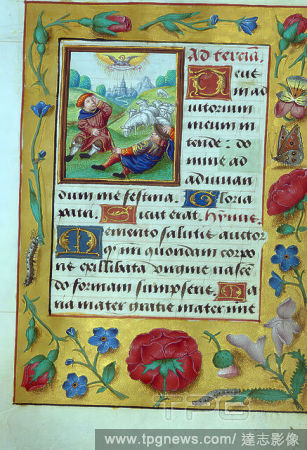 Ad terciā.
Deus
in ad
iutorium
meum in
tende: do
mine ad
adiuuan
dum me festina. Gloria
patri. Sicut erat. hymnꝰ.
Memento salutis auctor
ꝙ nr̄i quondam corpo
ris ex illibata virgine nascē
do formam sumpseris. Ma
ria mater gratie mater mīe
TPG
www.tpgnews.com/ 達志影像